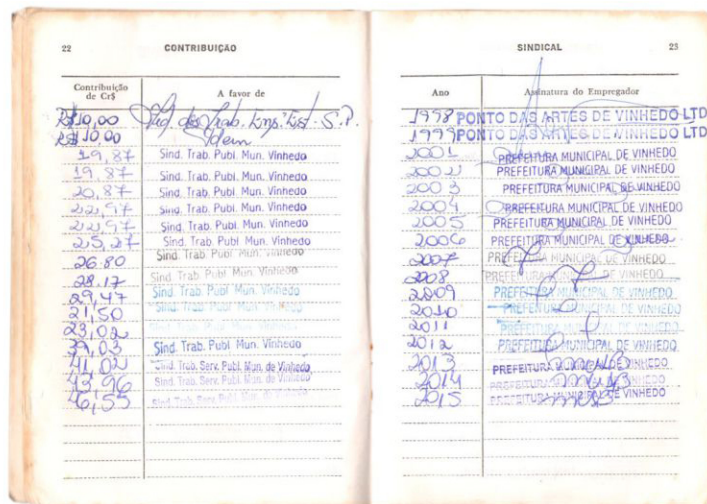 22 CONTRIBUIÇÃO
Contribuição de Cr$ A favor de
R$10,00 Sind dos Trab. Emp. Est - S.P.
R$10,00 Idem
19,87 Sind. Trab. Publ. Mun. Vinhedo
19,87 Sind. Trab. Publ. Mun. Vinhedo
20,87 Sind. Trab. Publ. Mun. Vinhedo
22,97 Sind. Trab. Publ. Mun. Vinhedo
22,97 Sind. Trab. Publ. Mun. Vinhedo
25,27 Sind. Trab. Publ. Mun. Vinhedo
26.80 Sind. Trab. Publ. Mun. Vinhedo
28.17 Sind. Trab. Publ. Mun. Vinhedo
29,47 Sind. Trab. Publ. Mun. Vinhedo
21,50 Sind. Trab. Publ. Mun. Vinhedo
23,02
39,03 Sind. Trab. Publ. Mun. Vinhedo
41,02 Sind. Trab. Serv. Publ. Mun. de Vinhedo
43,96 Sind. Trab. Serv. Publ. Mun. de Vinhedo
46,55 Sind. Trab. Serv. Publ. Mun. de Vinhedo
SINDICAL 23
Ano Assinatura do Empregador
1998 PONTO DAS ARTES DE VINHEDO LTD
1999 PONTO DAS ARTES DE VINHEDO LTD
2001 PREFEITURA MUNICIPAL DE VINHEDO
2002 PREFEITURA MUNICIPAL DE VINHEDO
2003 PREFEITURA MUNICIPAL DE VINHEDO
2004 PREFEITURA MUNICIPAL DE VINHEDO
2005 PREFEITURA MUNICIPAL DE VINHEDO
2006 PREFEITURA MUNICIPAL DE VINHEDO
2007 PREFEITURA MUNICIPAL DE VINHEDO
2008 PREFEITURA MUNICIPAL DE VINHEDO
2009 PREFEITURA MUNICIPAL DE VINHEDO
2010 PREFEITURA MUNICIPAL DE VINHEDO
2011 PREFEITURA MUNICIPAL DE VINHEDO
2012 PREFEITURA MUNICIPAL DE VINHEDO
2013 PREFEITURA MUNICIPAL DE VINHEDO
2014 PREFEITURA MUNICIPAL DE VINHEDO
2015 PREFEITURA MUNICIPAL DE VINHEDO